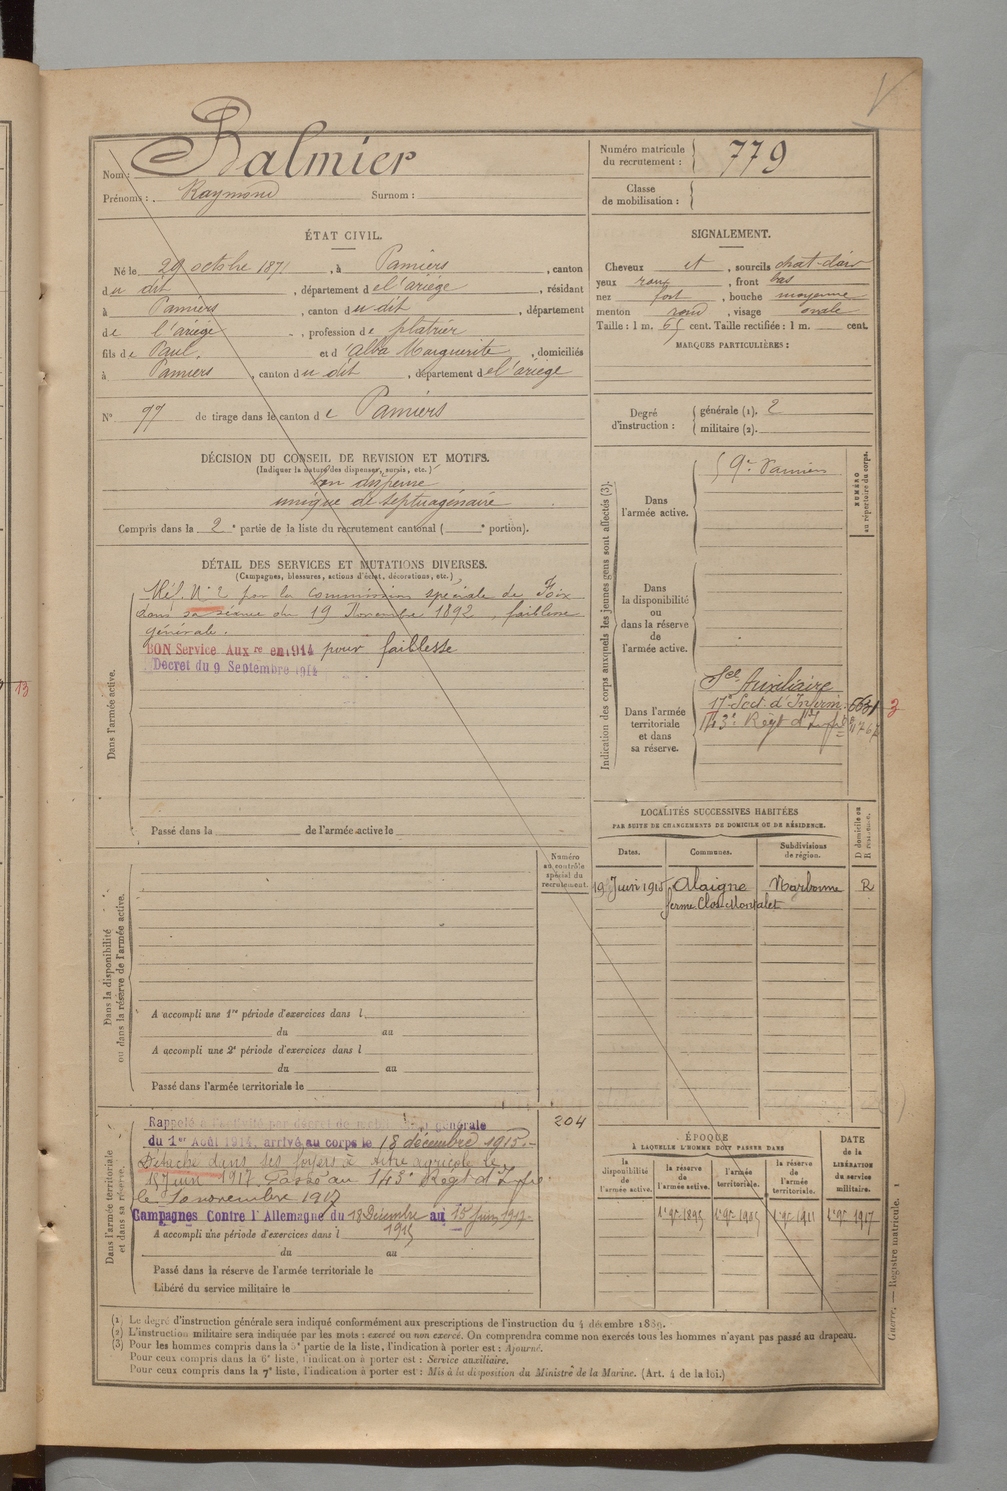 Nom : Balmier
Prénoms : Raymond Surnom :
Numéro matricule du recrutement : 779
Classe de mobilisation :
ÉTAT CIVIL.
Né le 29 octobre 1871, à Pamiers, canton
du dit, département de l'ariège, résidant
à Pamiers, canton du dit, département
de l'ariège, profession de platrier
fils de Paul, et d'Alba Marguerite, domiciliés
à Pamiers, canton du dit, département de l'ariège
N° 77 de tirage dans le canton de Pamiers
SIGNALEMENT.
Cheveux et, sourcils chat-clair
yeux roux, front bas
nez fort, bouche moyenne
menton rond, visage ovale
Taille : 1 m. 65 cent. Taille rectifiée : 1 m. cent.
MARQUES PARTICULIÈRES :
Degré d'instruction : générale (1). 2
militaire (2).
DÉCISION DU CONSEIL DE REVISION ET MOTIFS.
(Indiquer la nature des dispenses, sursis, etc.)
bon dispensé
unique de septuagénaire
Compris dans la 2e partie de la liste du recrutement cantonal ( e portion).
DÉTAIL DES SERVICES ET MUTATIONS DIVERSES.
(Campagnes, blessures, actions d'éclat, décorations, etc.)
Dans l'armée active.
N° 2 par la Commission spéciale de Foix
dans sa séance du 19 Novembre 1892, faiblesse
générale.
BON Service Auxre en 1914 pour faiblesse
Décret du 9 Septembre 1914
Passé dans la de l'armée active le
Indication des corps auxquels les jeunes gens sont affectés (3).
NUMÉRO au répertoire du corps.
Dans l'armée active.
9e Pamiers
Dans la disponibilité ou dans la réserve de l'armée active.
Dans l'armée territoriale et dans sa réserve.
Sce Auxiliaire
17e Sect. d'Infirm.
143e Regt d'Infie
13
3
LOCALITÉS SUCCESSIVES HABITÉES
PAR SUITE DE CHANGEMENTS DE DOMICILE OU DE RÉSIDENCE.
D domicile ou R résidence.
Dates. Communes. Subdivisions de région.
19 Juin 1915 Alaigne Narbonne R
ferme Clos-Monfalet
Dans la disponibilité ou dans la réserve de l'armée active.
Numéro au contrôle spécial du recrutement.
A accompli une 1re période d'exercices dans l
du au
A accompli une 2e période d'exercices dans l
du au
Passé dans l'armée territoriale le
204
Dans l'armée territoriale et dans sa réserve.
Rappelé à l'activité par décret de mobilisation générale
du 1er Août 1914, arrivé au corps le 18 décembre 1915.
Détaché dans ses foyers à titre agricole le
15 Juin 1917. Passé au 143e Regt d'Infie
le 10 novembre 1917
Campagnes Contre l'Allemagne du 18 Décembre 1915 au 15 Juin 1917.
A accompli une période d'exercices dans l
du au
Passé dans la réserve de l'armée territoriale le
Libéré du service militaire le
ÉPOQUE
À LAQUELLE L'HOMME DOIT PASSER DANS
DATE de la LIBÉRATION du service militaire.
la disponibilité de l'armée active. la réserve de l'armée active. l'armée territoriale. la réserve de l'armée territoriale.
1er 9bre 1895 1er 9bre 1905 1er 9bre 1911 1er 9bre 1917
Guerre. — Registre matricule. 1
(1) Le degré d'instruction générale sera indiqué conformément aux prescriptions de l'instruction du 4 décembre 1889.
(2) L'instruction militaire sera indiquée par les mots : exercé ou non exercé. On comprendra comme non exercés tous les hommes n'ayant pas passé au drapeau.
(3) Pour les hommes compris dans la 5e partie de la liste, l'indication à porter est : Ajourné.
Pour ceux compris dans la 6e liste, l'indication à porter est : Service auxiliaire.
Pour ceux compris dans la 7e liste, l'indication à porter est : Mis à la disposition du Ministre de la Marine. (Art. 4 de la loi.)